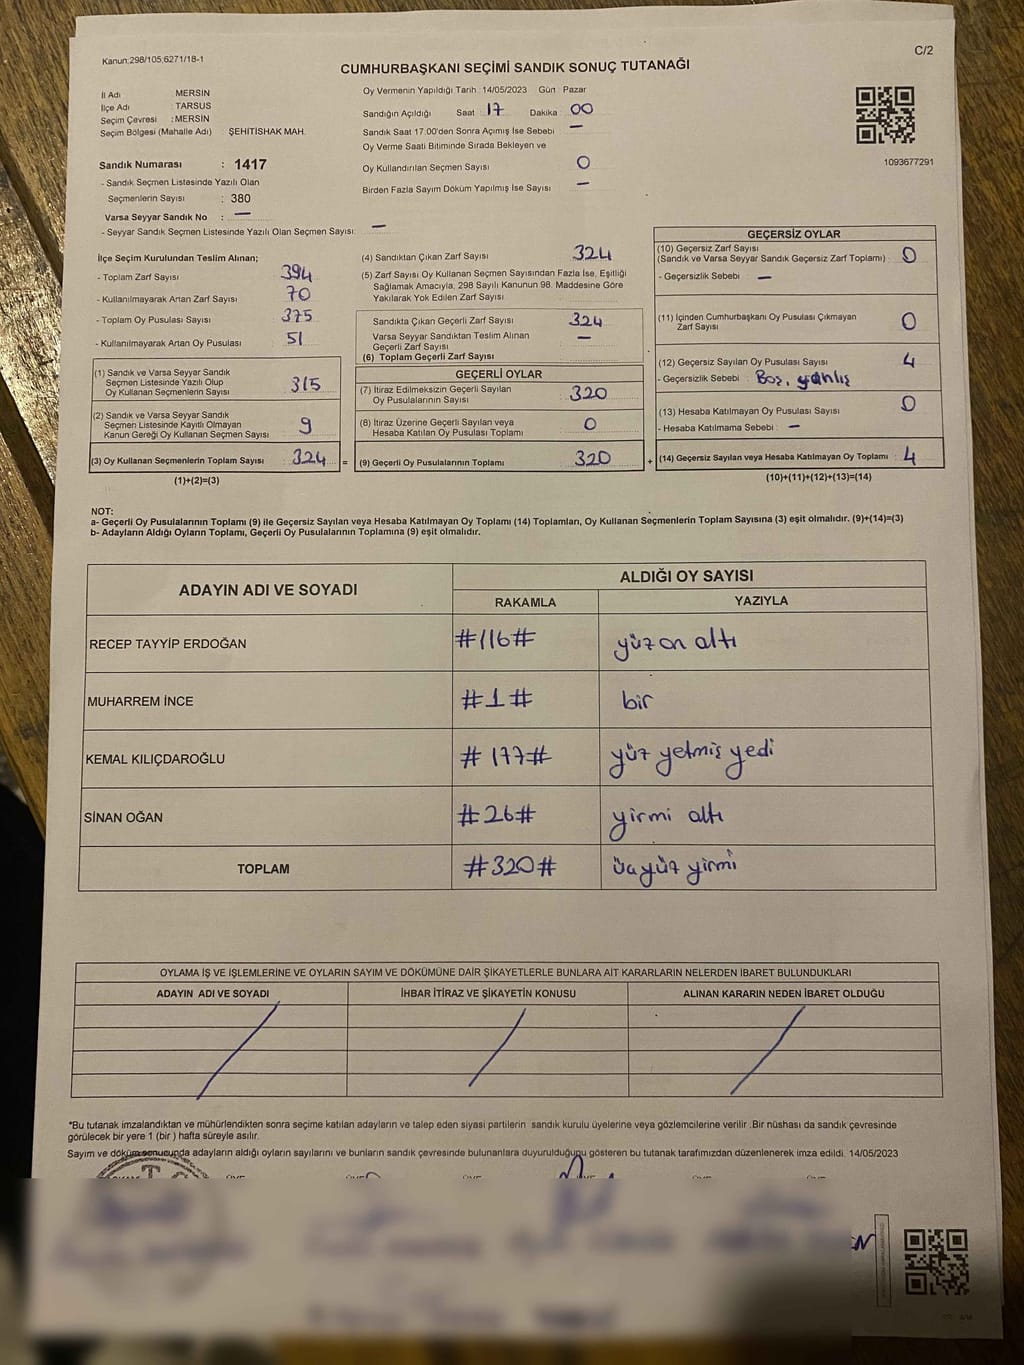 Kanun;298/105;6271/18-1
C/2
CUMHURBAŞKANI SEÇİMİ SANDIK SONUÇ TUTANAĞI
İl Adı MERSIN
İlçe Adı TARSUS
Seçim Çevresi :MERSIN
Seçim Bölgesi (Mahalle Adı) ŞEHİTİSHAK MAH.
Sandık Numarası : 1417
- Sandık Seçmen Listesinde Yazılı Olan
Seçmenlerin Sayısı : 380
Varsa Seyyar Sandık No : —
- Seyyar Sandık Seçmen Listesinde Yazılı Olan Seçmen Sayısı: —
Oy Vermenin Yapıldığı Tarih :14/05/2023 Gün Pazar
Sandığın Açıldığı Saat 17 Dakika 00
Sandık Saat 17.00'den Sonra Açımış İse Sebebi —
Oy Verme Saati Bitiminde Sırada Bekleyen ve
Oy Kullandırılan Seçmen Sayısı 0
Birden Fazla Sayım Döküm Yapılmış İse Sayısı —
1093677291
İlçe Seçim Kurulundan Teslim Alınan;
- Toplam Zarf Sayısı 394
- Kullanılmayarak Artan Zarf Sayısı 70
- Toplam Oy Pusulası Sayısı 375
- Kullanılmayarak Artan Oy Pusulası 51
(1) Sandık ve Varsa Seyyar Sandık
Seçmen Listesinde Yazılı Olup
Oy Kullanan Seçmenlerin Sayısı 315
(2) Sandık ve Varsa Seyyar Sandık
Seçmen Listesinde Kayıtlı Olmayan
Kanun Gereği Oy Kullanan Seçmen Sayısı 9
(3) Oy Kullanan Seçmenlerin Toplam Sayısı 324 =
(1)+(2)=(3)
(4) Sandıktan Çıkan Zarf Sayısı 324
(5) Zarf Sayısı Oy Kullanan Seçmen Sayısından Fazla İse, Eşitliği
Sağlamak Amacıyla, 298 Sayılı Kanunun 98. Maddesine Göre
Yakılarak Yok Edilen Zarf Sayısı
Sandıkta Çıkan Geçerli Zarf Sayısı 324
Varsa Seyyar Sandıktan Teslim Alınan
Geçerli Zarf Sayısı —
(6) Toplam Geçerli Zarf Sayısı
GEÇERLİ OYLAR
(7) İtiraz Edilmeksizin Geçerli Sayılan
Oy Pusulalarının Sayısı 320
(8) İtiraz Üzerine Geçerli Sayılan veya
Hesaba Katılan Oy Pusulası Toplamı 0
(9) Geçerli Oy Pusulalarının Toplamı 320 +
GEÇERSİZ OYLAR
(10) Geçersiz Zarf Sayısı
(Sandık ve Varsa Seyyar Sandık Geçersiz Zarf Toplamı) : 0
- Geçersizlik Sebebi : —
(11) İçinden Cumhurbaşkanı Oy Pusulası Çıkmayan
Zarf Sayısı 0
(12) Geçersiz Sayılan Oy Pusulası Sayısı 4
- Geçersizlik Sebebi : Boş, yanlış
(13) Hesaba Katılmayan Oy Pusulası Sayısı 0
- Hesaba Katılmama Sebebi : —
(14) Geçersiz Sayılan veya Hesaba Katılmayan Oy Toplamı : 4
(10)+(11)+(12)+(13)=(14)
NOT:
a- Geçerli Oy Pusulalarının Toplamı (9) ile Geçersiz Sayılan veya Hesaba Katılmayan Oy Toplamı (14) Toplamları, Oy Kullanan Seçmenlerin Toplam Sayısına (3) eşit olmalıdır. (9)+(14)=(3)
b- Adayların Aldığı Oyların Toplamı, Geçerli Oy Pusulalarının Toplamına (9) eşit olmalıdır.
ADAYIN ADI VE SOYADI ALDIĞI OY SAYISI
RAKAMLA YAZIYLA
RECEP TAYYİP ERDOĞAN #116# yüz on altı
MUHARREM İNCE #1# bir
KEMAL KILIÇDAROĞLU #177# yüz yetmiş yedi
SİNAN OĞAN #26# yirmi altı
TOPLAM #320# üçyüz yirmi
OYLAMA İŞ VE İŞLEMLERİNE VE OYLARIN SAYIM VE DÖKÜMÜNE DAİR ŞİKAYETLERLE BUNLARA AİT KARARLARIN NELERDEN İBARET BULUNDUKLARI
ADAYIN ADI VE SOYADI İHBAR İTİRAZ VE ŞİKAYETİN KONUSU ALINAN KARARIN NEDEN İBARET OLDUĞU
*Bu tutanak imzalandıktan ve mühürlendikten sonra seçime katılan adayların ve talep eden siyasi partilerin sandık kurulu üyelerine veya gözlemcilerine verilir .Bir nüshası da sandık çevresinde
görülecek bir yere 1 (bir ) hafta süreyle asılır.
Sayım ve döküm sonucunda adayların aldığı oyların sayılarını ve bunların sandık çevresinde bulunanlara duyurulduğunu gösteren bu tutanak tarafımızdan düzenlenerek imza edildi. 14/05/2023